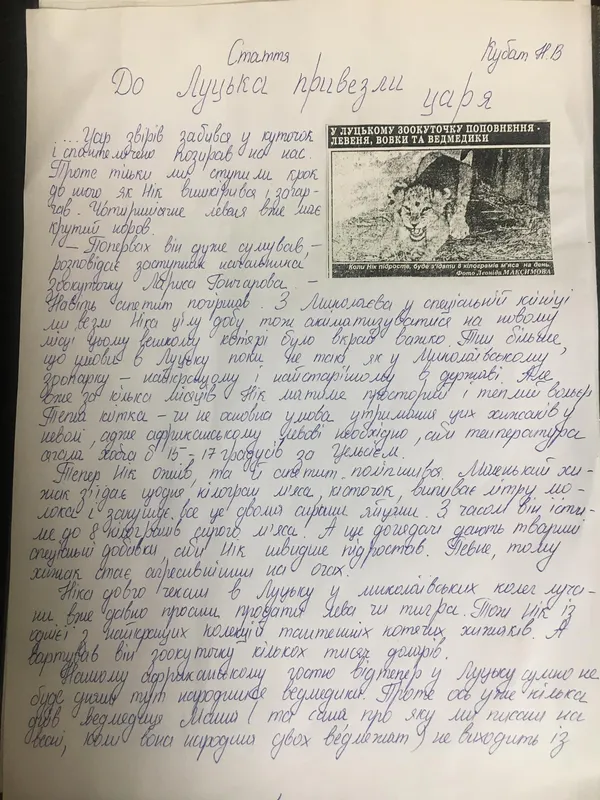 Стаття
Кубат Н.В
До Луцька привезли
царя
....Цар звірів забився у куточок
і спантеличено позирав на нас.
Проте тільки ми ступили крок
до нього як Нік вишкірився, загар-
чав. Чотиримісячне левеня вже має
крутий норов.
У ЛУЦЬКОМУ ЗООКУТОЧКУ ПОПОВНЕННЯ -
ЛЕВЕНЯ, ВОВКИ ТА ВЕДМЕДИКИ
Коли Нік підросте, буде з'їдати 8 кілограмів м'яса на день.
Фото Леоніда МАКСИМОВА.
- Попервах він дуже сумував, -
розповідає заступник начальника
зоокуточку Лариса Гончарова. -
Навіть апетит погіршав. З Миколаєва у спеціальній клітці
ми везли Ніка цілу добу, тож акліматизуватися на новому
місці цьому великому котярі було вкрай важко. Тим більше,
що умови в Луцьку поки не такі як у Миколаївському
зоопарку - найкращому і найстарішому в державі. Але
вже за кілька місяців Нік матиме просторий і теплий вольєр
Тепла клітка - чи не основна умова утримання цих хижаків у
неволі, адже африканському левові необхідно, аби температура
сягала хоча б 15 - 17 градусів за Цельсієм.
Тепер Нік ожив, та й апетит поліпшився. Маленький хи-
жак з'їдає щодня кілограм м'яса, кісточок, випиває літру мо-
лока і закушує все це двома сирими яйцями. З часом він їсти-
ме до 8 кілограмів сирого м'яса. А ще доглядачі дають тварині
спеціальні добавки, аби Нік швидше підростав. Певне, тому
хижак стає агресивнішим на очах.
Ніка довго чекали в Луцьку у миколаївських колег луча-
ни вже давно просили продати лева чи тигра. Тож Нік із
однієї з найкращих колекцій тамтешніх котячих хижаків. А
вартував він зоокуточку кількох тисяч доларів.
Нашому африканському гостю відтепер у Луцьку сумно не
буде днями тут народилися ведмедики. Проте ось уже кілька
днів ведмедиця Маша (та сама про яку ми писали на
весні, коли вона народила двох ведмежат) не виходить із